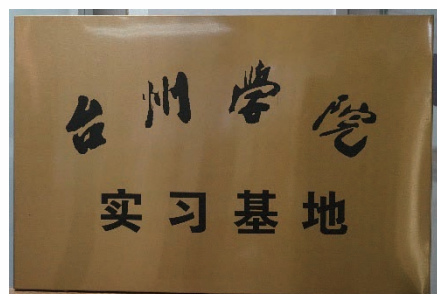 台州学院
实习基地